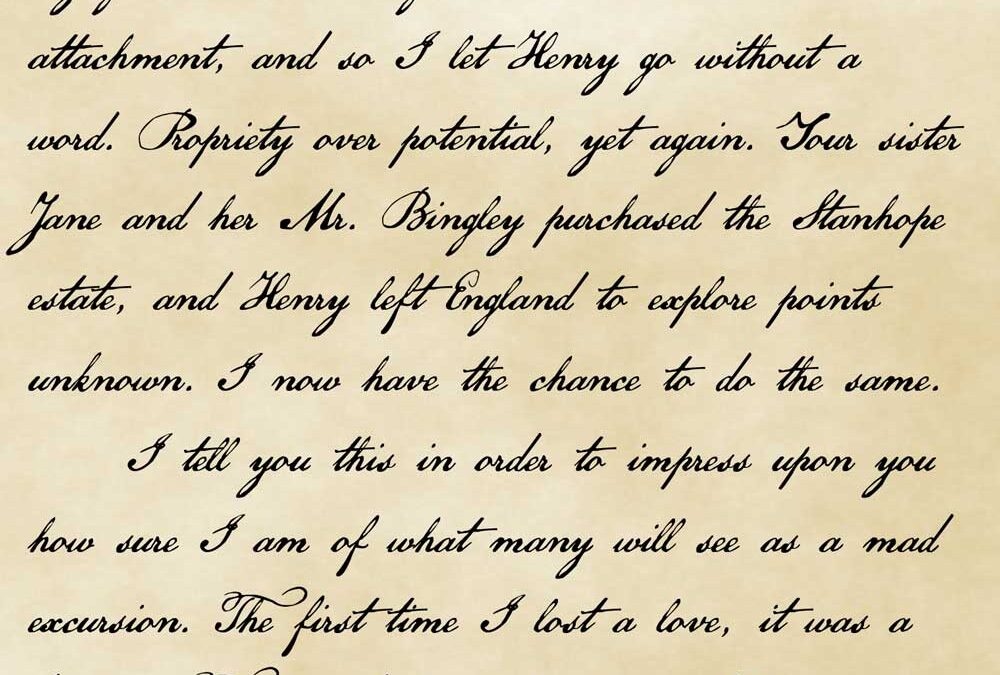 attachment, and so I let Henry go without a
word. Propriety over potential, yet again. Your sister
Jane and her Mr. Bingley purchased the Stanhope
estate, and Henry left England to explore points
unknown. I now have the chance to do the same.
I tell you this in order to impress upon you
how sure I am of what many will see as a mad
excursion. The first time I lost a love, it was a